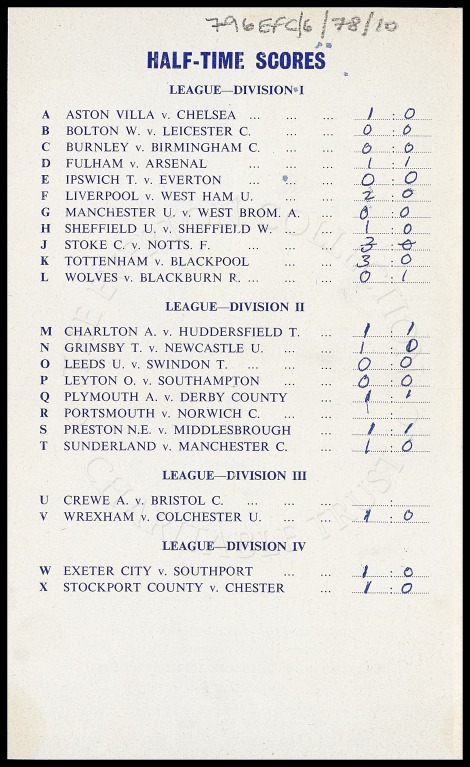 796EFC/6/78/10
HALF-TIME SCORES
LEAGUE—DIVISION I
A ASTON VILLA v. CHELSEA ... ... ... 1 : 0
B BOLTON W. v. LEICESTER C. ... ... 0 : 0
C BURNLEY v. BIRMINGHAM C. ... ... 0 : 0
D FULHAM v. ARSENAL ... ... ... 1 : 1
E IPSWICH T. v. EVERTON ... ... 0 : 0
F LIVERPOOL v. WEST HAM U. ... ... 2 : 0
G MANCHESTER U. v. WEST BROM. A. ... 0 : 0
H SHEFFIELD U. v. SHEFFIELD W. ... ... 1 : 0
J STOKE C. v. NOTTS. F. ... ... ... 3 : 0
K TOTTENHAM v. BLACKPOOL ... ... 3 : 0
L WOLVES v. BLACKBURN R. ... ... ... 0 : 1
LEAGUE—DIVISION II
M CHARLTON A. v. HUDDERSFIELD T. ... 1 : 1
N GRIMSBY T. v. NEWCASTLE U. ... ... 1 : 0
O LEEDS U. v. SWINDON T. ... ... ... 0 : 0
P LEYTON O. v. SOUTHAMPTON ... ... 0 : 0
Q PLYMOUTH A. v. DERBY COUNTY ... 1 : 1
R PORTSMOUTH v. NORWICH C. ... ... 1 :
S PRESTON N.E. v. MIDDLESBROUGH ... 1 : 1
T SUNDERLAND v. MANCHESTER C. ... 1 : 0
LEAGUE—DIVISION III
U CREWE A. v. BRISTOL C. ... ... ... :
V WREXHAM v. COLCHESTER U. ... ... 1 : 0
LEAGUE—DIVISION IV
W EXETER CITY v. SOUTHPORT ... ... 1 : 0
X STOCKPORT COUNTY v. CHESTER ... 1 : 0